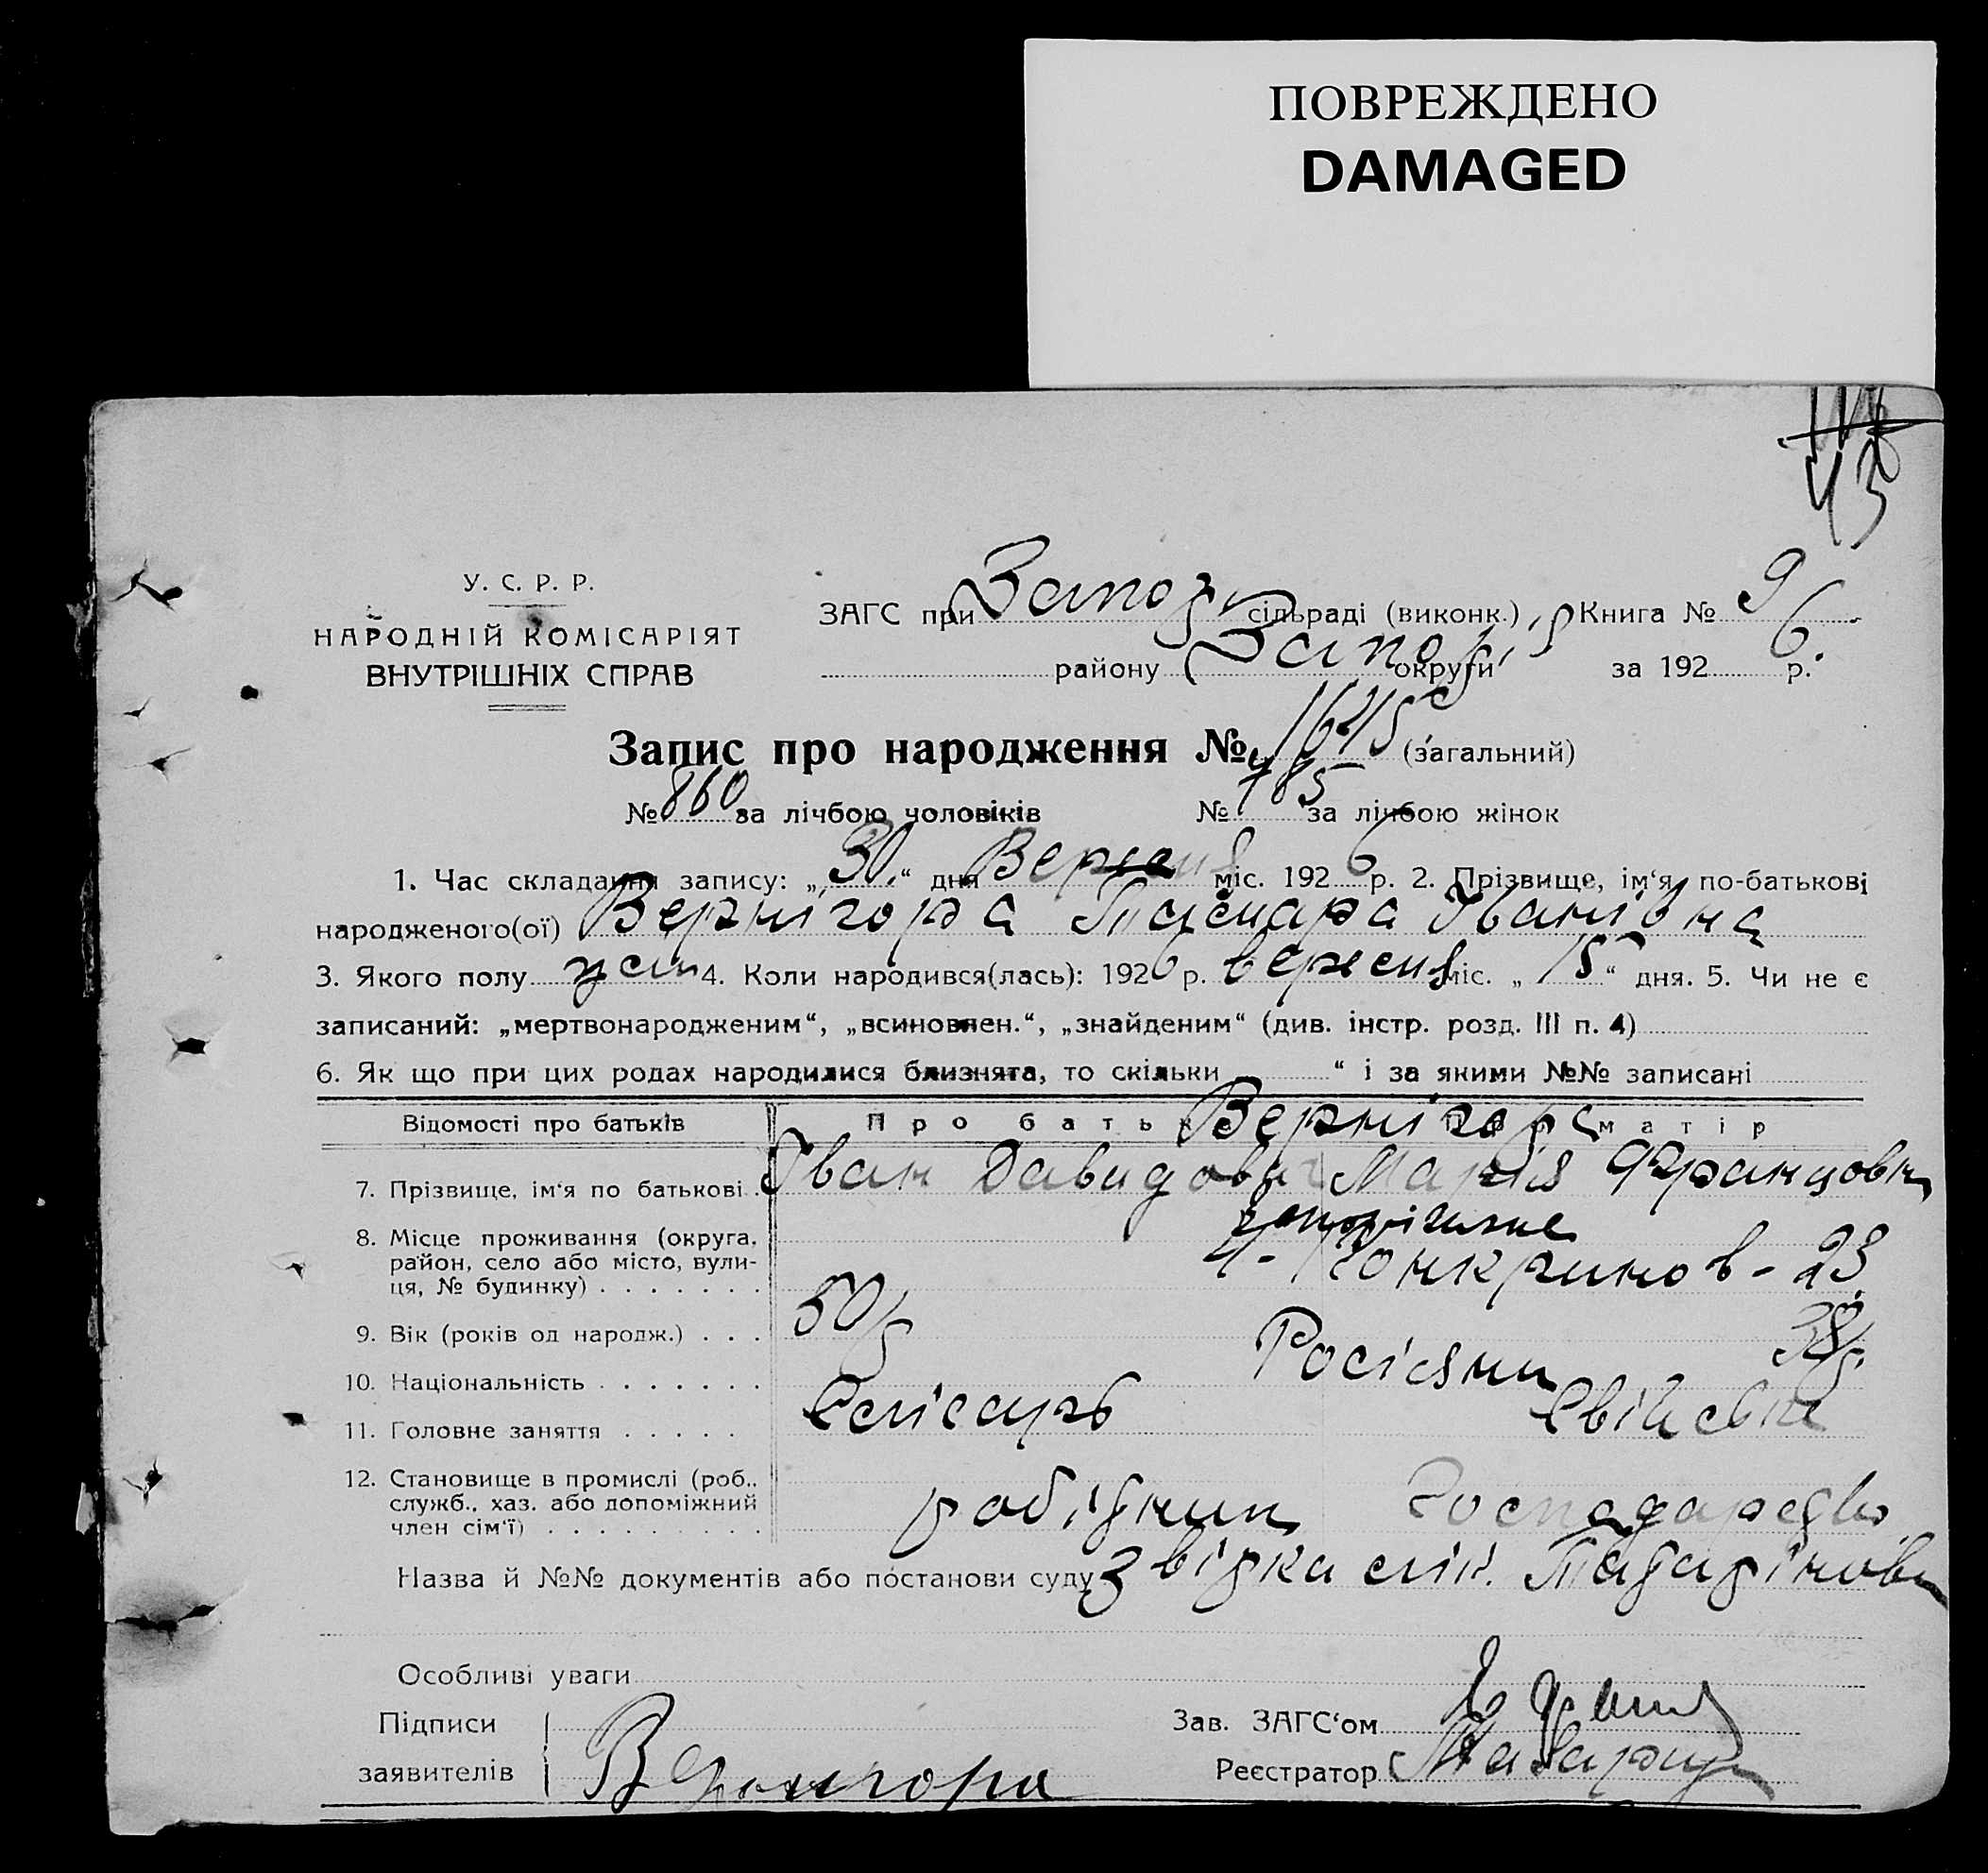 ПОВРЕЖДЕНО
DAMAGED
45
У. С. Р. Р.
НАРОДНІЙ КОМІСАРІЯТ
ВНУТРІШНІХ СПРАВ
ЗАГС при Запор. сільраді (виконк.) Книга № 9
району Запоріз округи за 1926 р.
Запис про народження № 1645 (загальний)
№ 860 за лічбою чоловіків № 785 за лічбою жінок
1. Час складання запису: „30“ дня Вересня міс. 1926 р. 2. Прізвище, ім'я, по-батькові
народженого(ої) Вернігора Тамара Іванівна
3. Якого полу жін 4. Коли народився(лась): 1926 р. вересня міс. „15“ дня. 5. Чи не є
записаний: „мертвонародженим“, „всиновлен.“, „знайденим“ (див. інстр. розд. III п. 4)
6. Як що при цих родах народилися близнята, то скільки “ і за якими №№ записані
Відомості про батьків Про батька Вернігора Про матір
7. Прізвище, ім'я по батькові Іван Давидович Марія Францовн
запоріжже
8. Місце проживання (округа, район, село або місто, вулиця, № будинку) 23
9. Вік (років од народж.) 50 р 38 р.
10. Національність Росіяни
11. Головне заняття Слісарь Свійське
12. Становище в промислі (роб., служб., хаз. або допоміжний член сім'ї) робідник господарство
Назва й №№ документів або постанови суду Звідка лік.
Особливі уваги
Підписи
заявителів Вернигора
Зав. ЗАГС'ом
Реєстратор